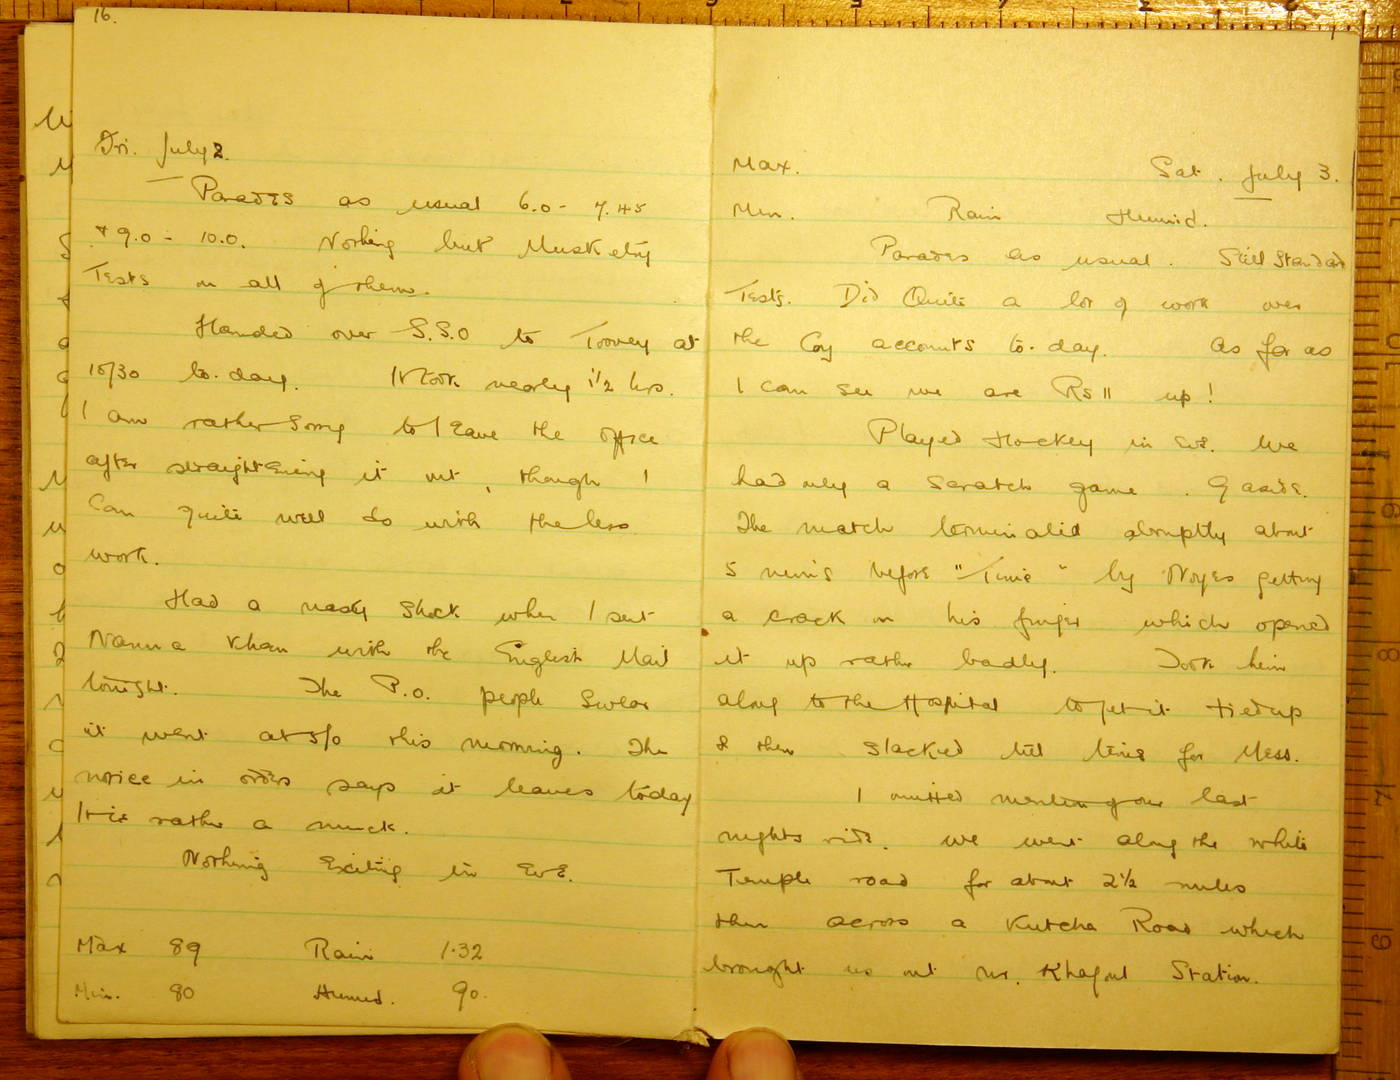 16.
Fri. July 2.
Parades as usual 6.0 - 7.45
& 9.0 - 10.0. Nothing but Musketry
Tests in all of them.
Handed over S.S.O to Toovey at
10/30 to-day. It took nearly 1½ hrs.
I am rather sorry to leave the office
after straightening it out, though I
can quite well do with the less
work.
Had a nasty shock when I sent
Nanna Khan with the English Mail
tonight. The P.O. people swear
it went at 5/0 this morning. The
notice in orders says it leaves today
It is rather a muck.
Nothing Exciting in Eve.
Max 89 Rain 1.32
Min. 80 Humid. 90.
Max. Sat. July 3.
Min. Rain Humid.
Parades as usual. Still Standard
Tests. Did Quite a lot of work over
the Coy accounts to-day. As far as
I can see we are Rs 11 up!
Played Hockey in Eve. We
had only a Scratch game. 9 aside.
The match terminated abruptly about
5 mins before "Time" by Noyes getting
a crack on his finger which opened
it up rather badly. Took him
along to the Hospital to get it tied up
& then slacked till time for Mess.
I omitted mention of our last
nights ride. We went along the white
Temple road for about 2½ miles
then across a Kutcha Road which
brought us out nr. Khagoul Station.